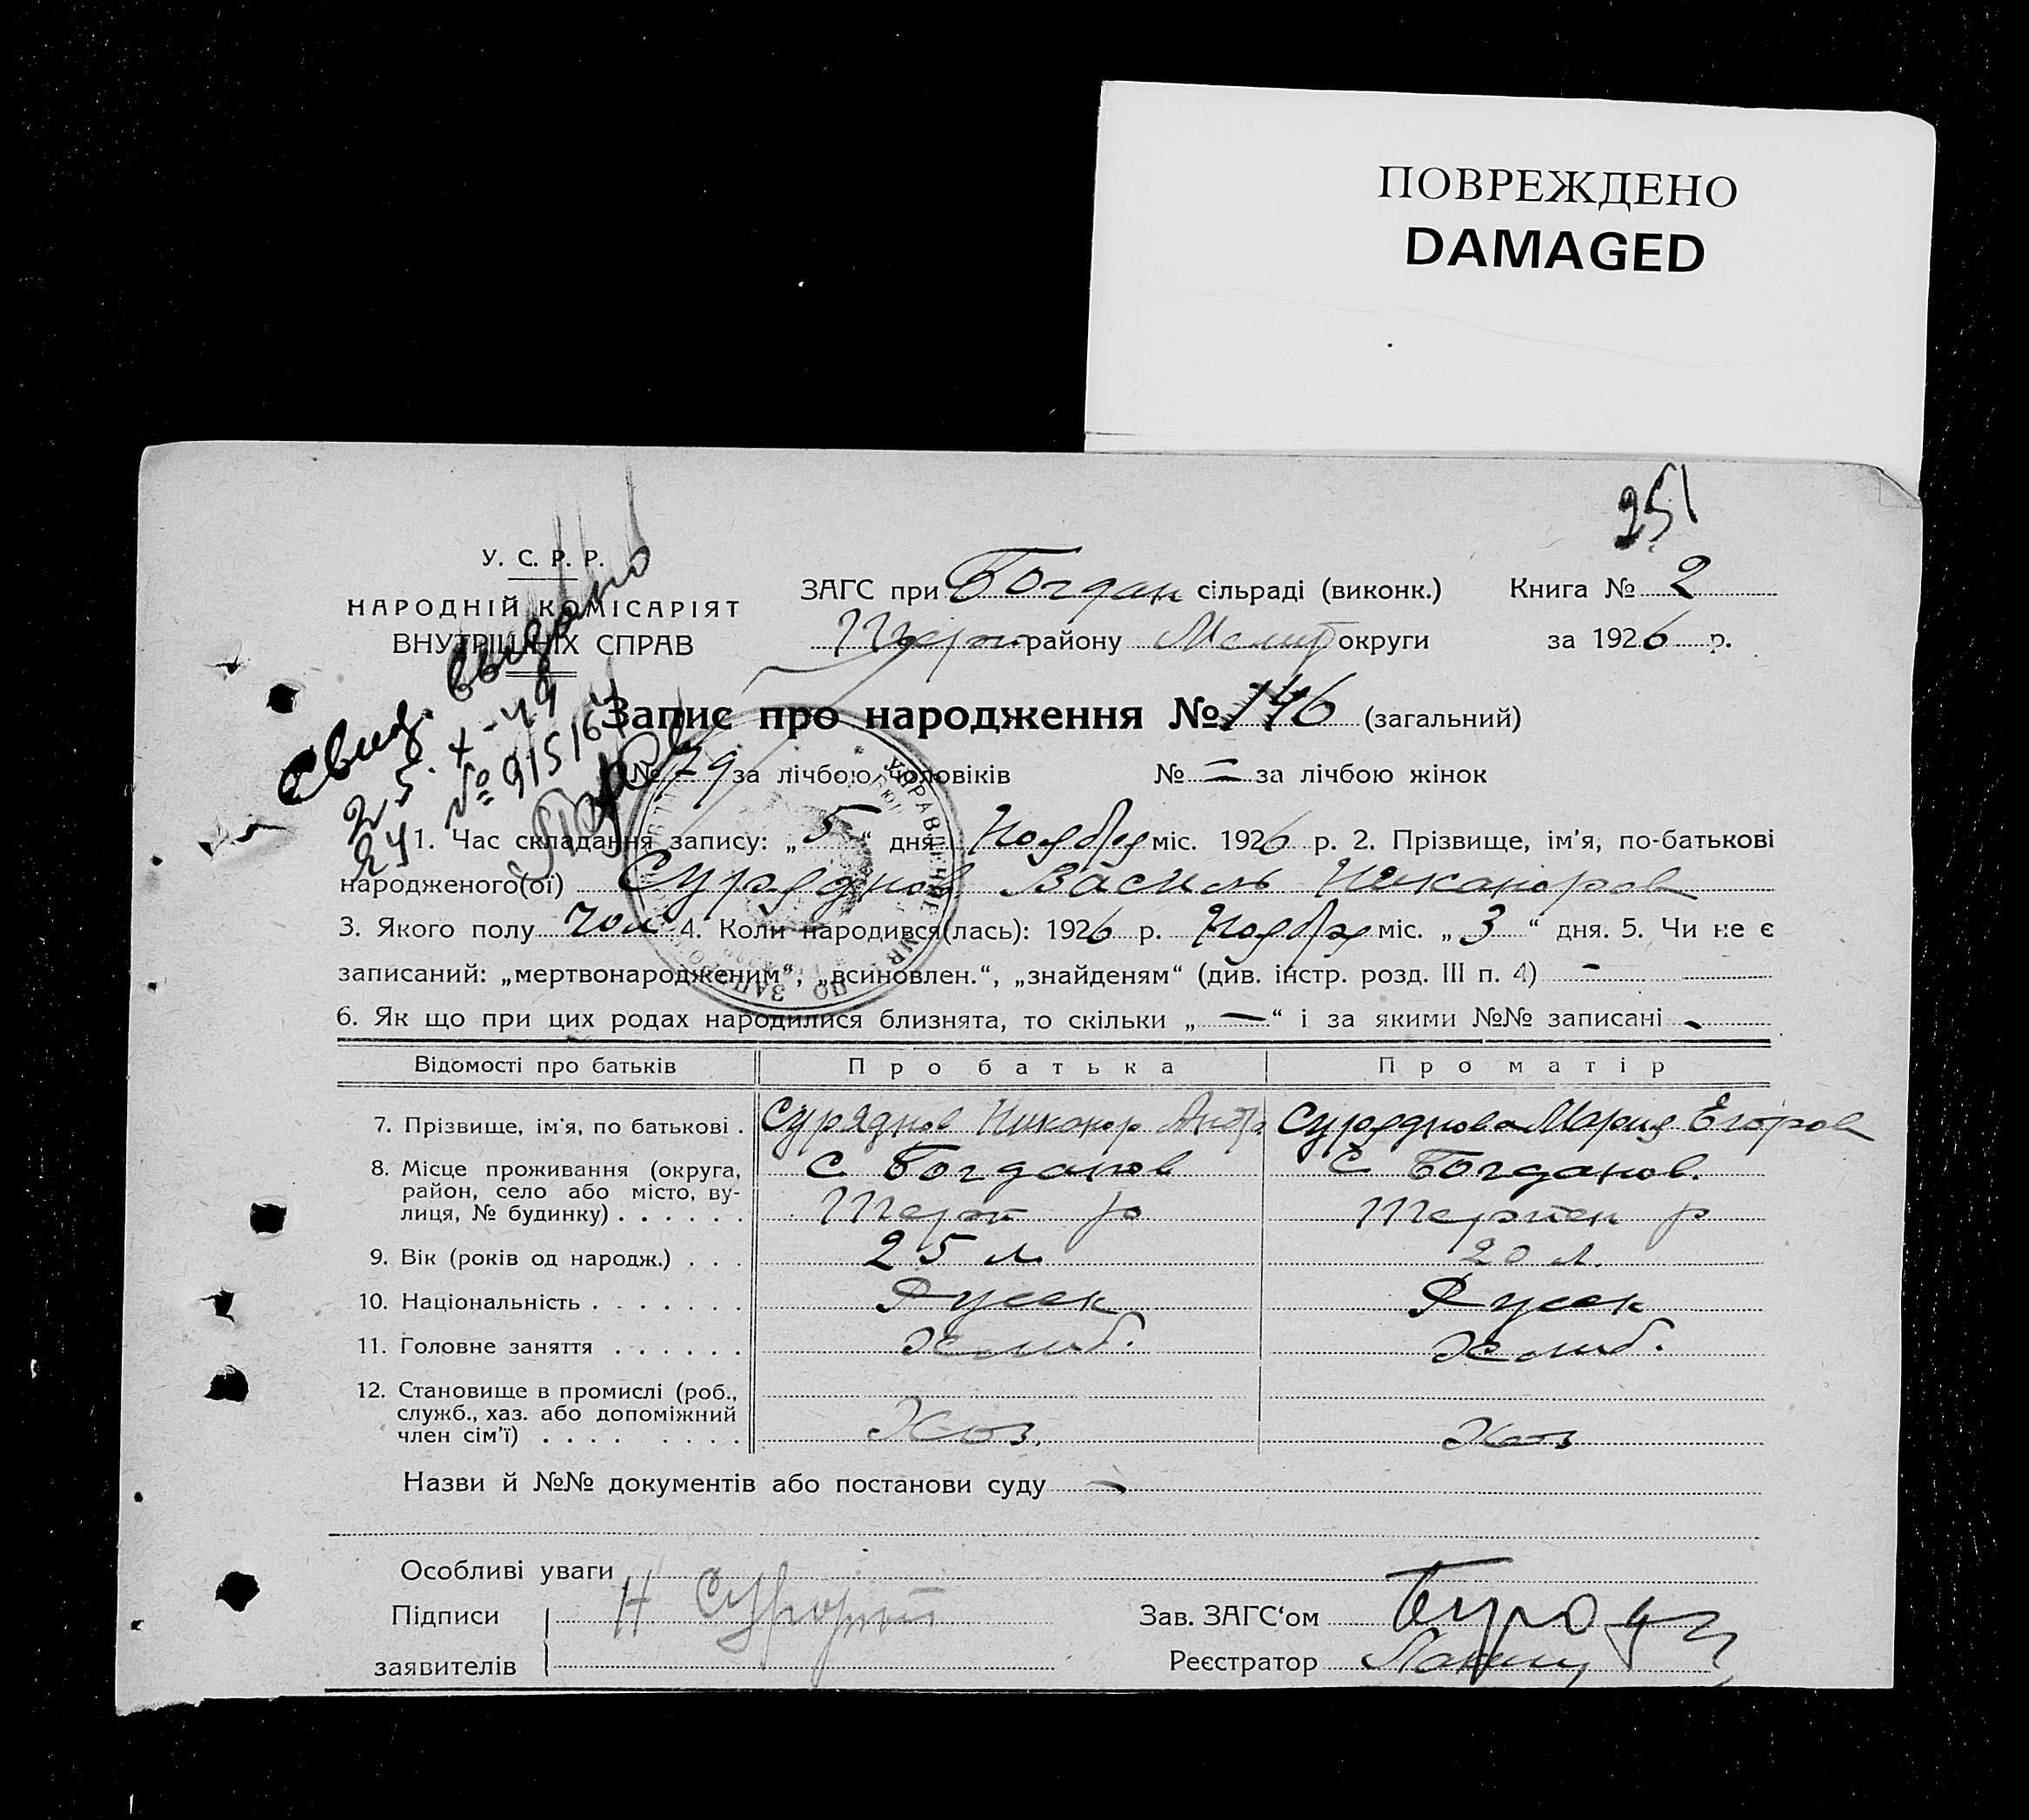 ПОВРЕЖДЕНО
DAMAGED
251
У. С. Р. Р.
НАРОДНІЙ КОМІСАРІЯТ
ВНУТРІШНІХ СПРАВ
ЗАГС при Богдан сільраді (виконк.) Книга № 2
району Мелит округи за 1926 р.
Свид. выдано
25. X-49
№ 915164
Запис про народження № 146 (загальний)
№ 79 за лічбою чоловіків № = за лічбою жінок
1. Час складання запису: „ 5 “ дня Ноября міс. 1926 р. 2. Прізвище, ім'я, по-батькові
народженого(ої) Суряднов Василь Никаноров
3. Якого полу чол 4. Коли народився(лась): 1926 р. Ноября міс. „ 3 “ дня. 5. Чи не є
записаний: „мертвонародженим“, „всиновлен.“, „знайденям“ (див. інстр. розд. III п. 4) -
6. Як що при цих родах народилися близнята, то скільки „ — “ і за якими №№ записані -
Відомості про батьків Про батька Про матір
7. Прізвище, ім'я, по батькові . Суряднов Никанор Суряднова Мария Егоров
8. Місце проживання (округа, район, село або місто, вулиця, № будинку) . . . . . . С Богданов С Богданов.
Терп р Терпен р
9. Вік (років од народж.) . . . 25 л 20 л.
10. Національність . . . . . . . Русск Русск
11. Головне заняття . . . . . . Хлиб. Хлиб.
12. Становище в промислі (роб., служб., хаз. або допоміжний член сім'ї) . . . . . . . . Хоз. Хоз
Назви й №№ документів або постанови суду —
Особливі уваги
Підписи Н Зав. ЗАГС‘ом
заявителів Реєстратор